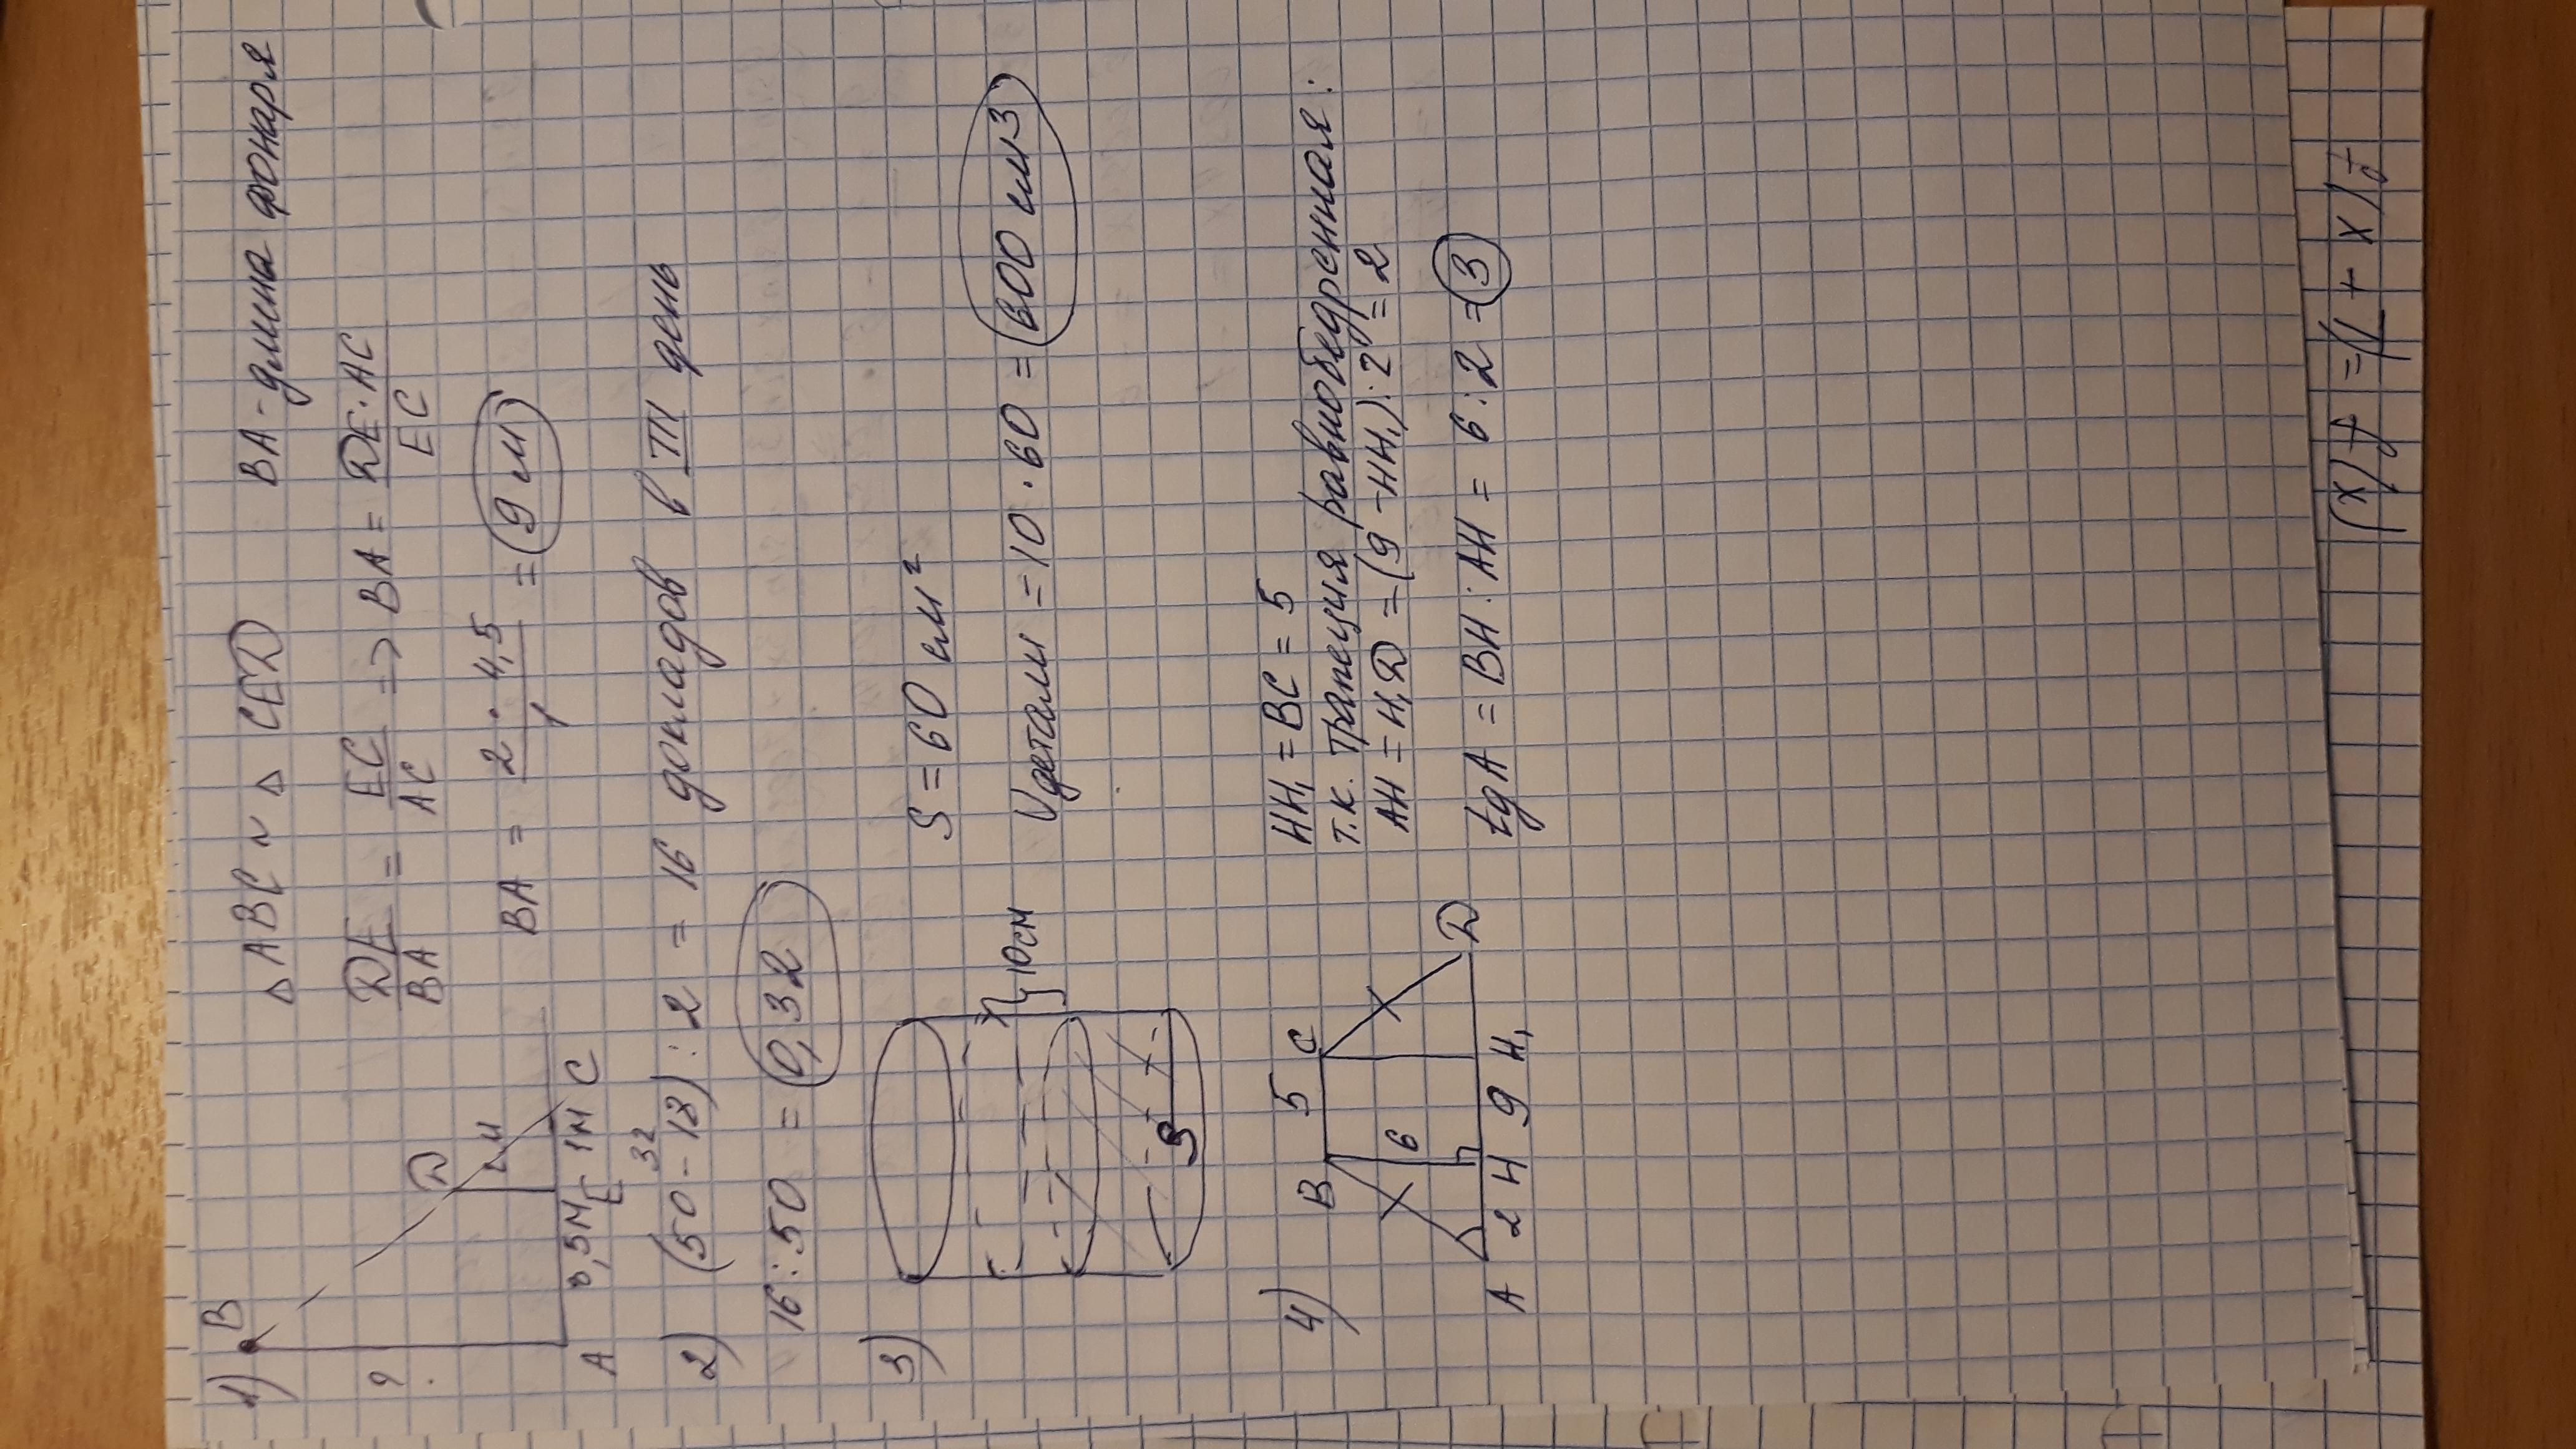 1) B
?
D
2м
A 3,5м E 1м C
△ABC ~ △CED BA - длина фонаря
DE/BA = EC/AC => BA = DE·AC/EC
BA = 2·4,5/1 = 9 м
2) (50-18):2 = 16 докладов в III день
32
16:50 = 0,32
3)
} 10см
S
S = 60 см²
Vдетали = 10·60 = 600 см3
4)
B 5 C
6
A 2 H 9 H₁ D
HH₁ = BC = 5
т.к. трапеция равнобедренная:
AH = H₁D = (9-HH₁):2 = 2
tgA = BH:AH = 6:2 = 3